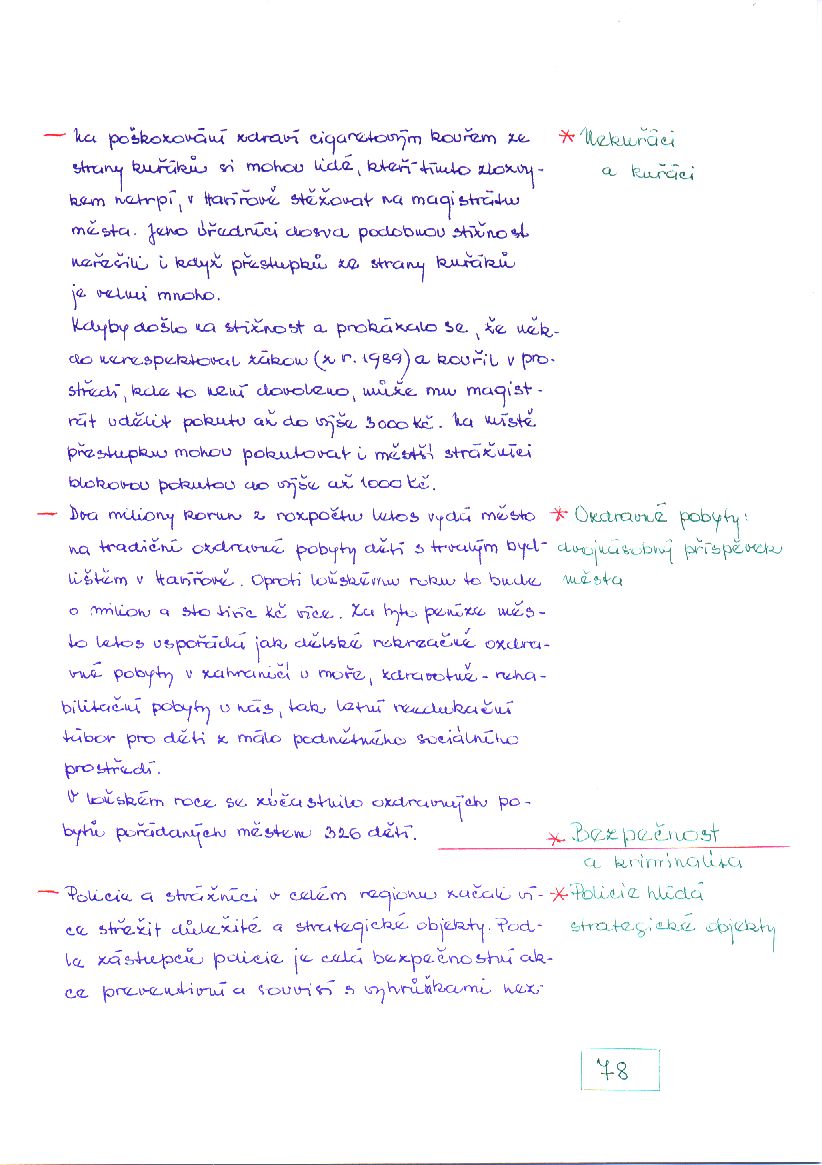 — Na poškozování zdraví cigaretovým kouřem ze
* Nekuřáci
strany kuřáků si mohou lidé, kteří tímto zlozvy-
a kuřáci
kem netrpí, v Havířově stěžovat na magistrátu
města. Jeho úředníci dosva podobnou stížnost
neřešili i když přestupků ze strany kuřáků
je velmi mnoho.
Kdyby došlo na stížnost a prokázalo se, že něk-
do nerespektoval zákon (z r. 1989) a kouřil v pro-
středí, kde to není dovoleno, může mu magist-
rát udělit pokutu až do výše 3000 kč. Na místě
přestupku mohou pokutovat i městší strážníci
blokovou pokutou do výše až 1000 kč.
— Dva miliony korun z rozpočtu letos vydá město
* Ozdravné pobyty:
na tradiční ozdravné pobyty dětí s trvalým byd-
dvojnásobný příspěvek
lištěm v Havířově. Oproti loňskému roku to bude
města
o milion a sto tisíc kč více. Za tyto peníze měs-
to letos uspořádá jak dětské rekreačně ozdra-
vné pobyty v zahraničí u moře, zdravotně-reha-
bilitační pobyty u nás, tak letní reedukační
tábor pro děti z málo podnětného sociálního
prostředí.
V loňském roce se zúčastnilo ozdravných po-
bytů pořádaných městem 326 dětí.
* Bezpečnost
a kriminalita
— Policie a strážníci v celém regionu začali ví-
* Policie hlídá
ce střežit důležité a strategické objekty. Pod-
strategické objekty
le zástupců policie je celá bezpečnostní ak-
ce preventivní a souvisí s výhrůžkami nez-
78